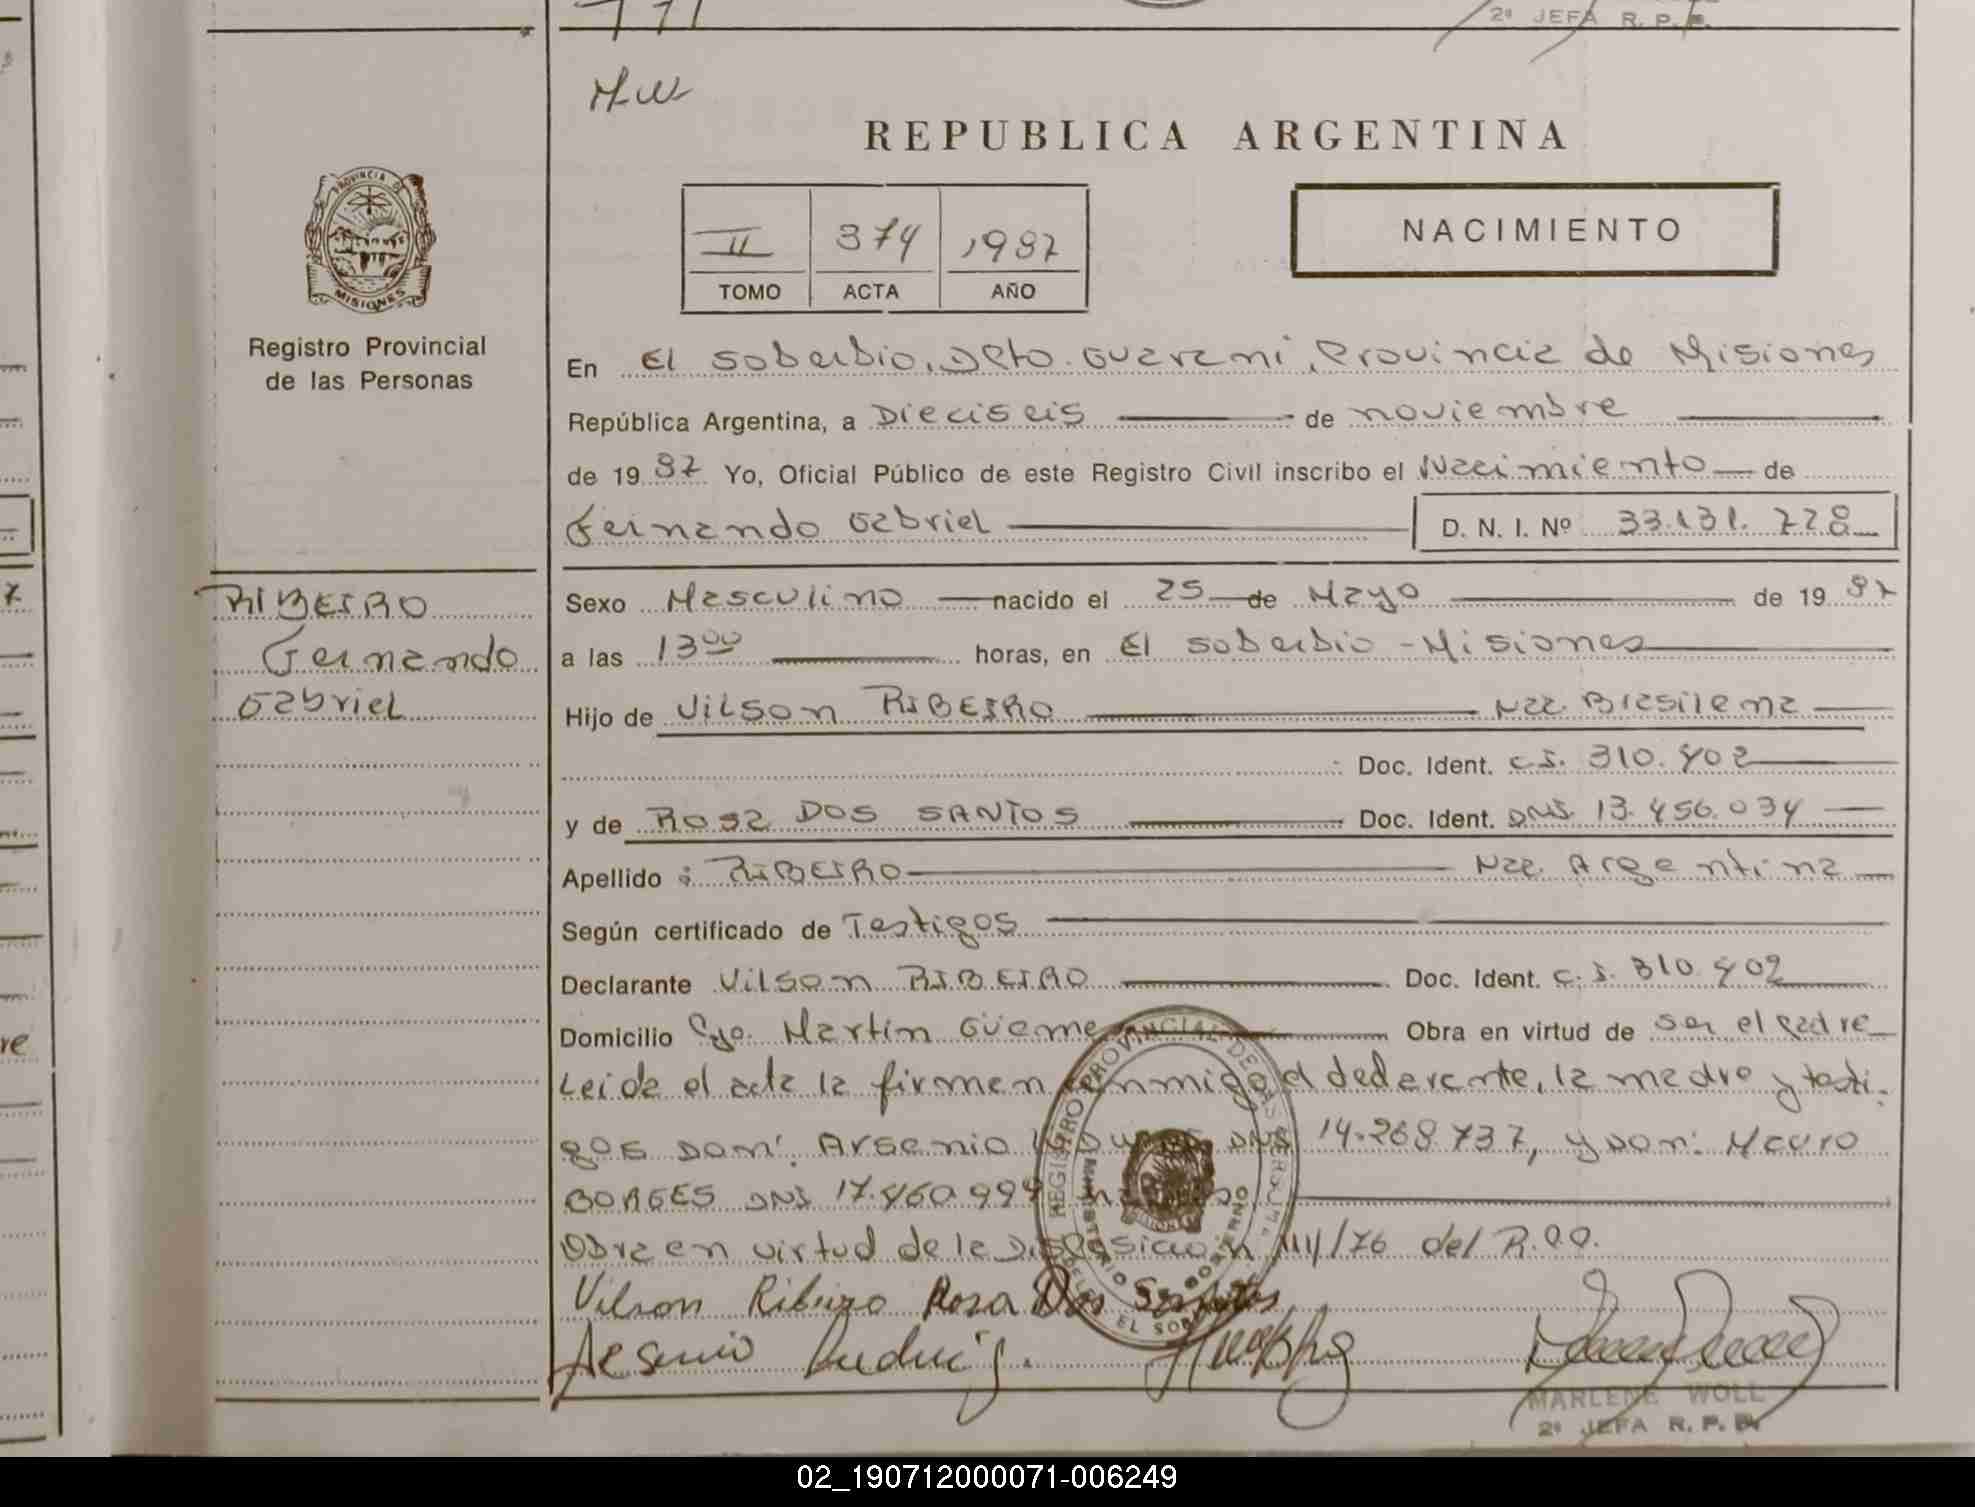 2º JEFA R. P. P.
M.W
REPUBLICA ARGENTINA
PROVINCIA DE
MISIONES
II 374 1987
TOMO ACTA AÑO
NACIMIENTO
Registro Provincial
de las Personas
En El Soberbio, Dpto. Guarani, Provincia de Misiones
República Argentina, a Dieciseis de noviembre
de 1987 Yo, Oficial Público de este Registro Civil inscribo el Nacimiento de
Fernando Gabriel D. N. I. Nº 33.131.728
RIBEIRO
Fernando
Gabriel
Sexo Masculino nacido el 25 de Mayo de 1987
a las 13 00 horas, en El Soberbio - Misiones
Hijo de Vilson RIBEIRO Nac. Brasilena
Doc. Ident. C.I. 310.402
y de Rosa DOS SANTOS Doc. Ident. DNI 13.456.034
Apellido : RIBEIRO Nac. Argentina
Según certificado de Testigos
Declarante Vilson RIBEIRO Doc. Ident. C.I. 310.402
Domicilio Martin Güeme Obra en virtud de ser el padre
Leida el acta la firman conmigo el declarante, la madre y testi-
gos Don: Arsenio DNI 14.268.737, y Don: Mauro
BORGES DNI 17.460.999
Obra en virtud de la Disposicion /76 del R.P.P.
Vilson Ribeiro Rosa Dos Santos
Arsenio Ludwig.
REGISTRO PROVINCIAL DE LAS PERSONAS
MINISTERIO DE GOBIERNO
EL SOBERBIO
MARLENE WOLL
2º JEFA R. P. P.
02_190712000071-006249